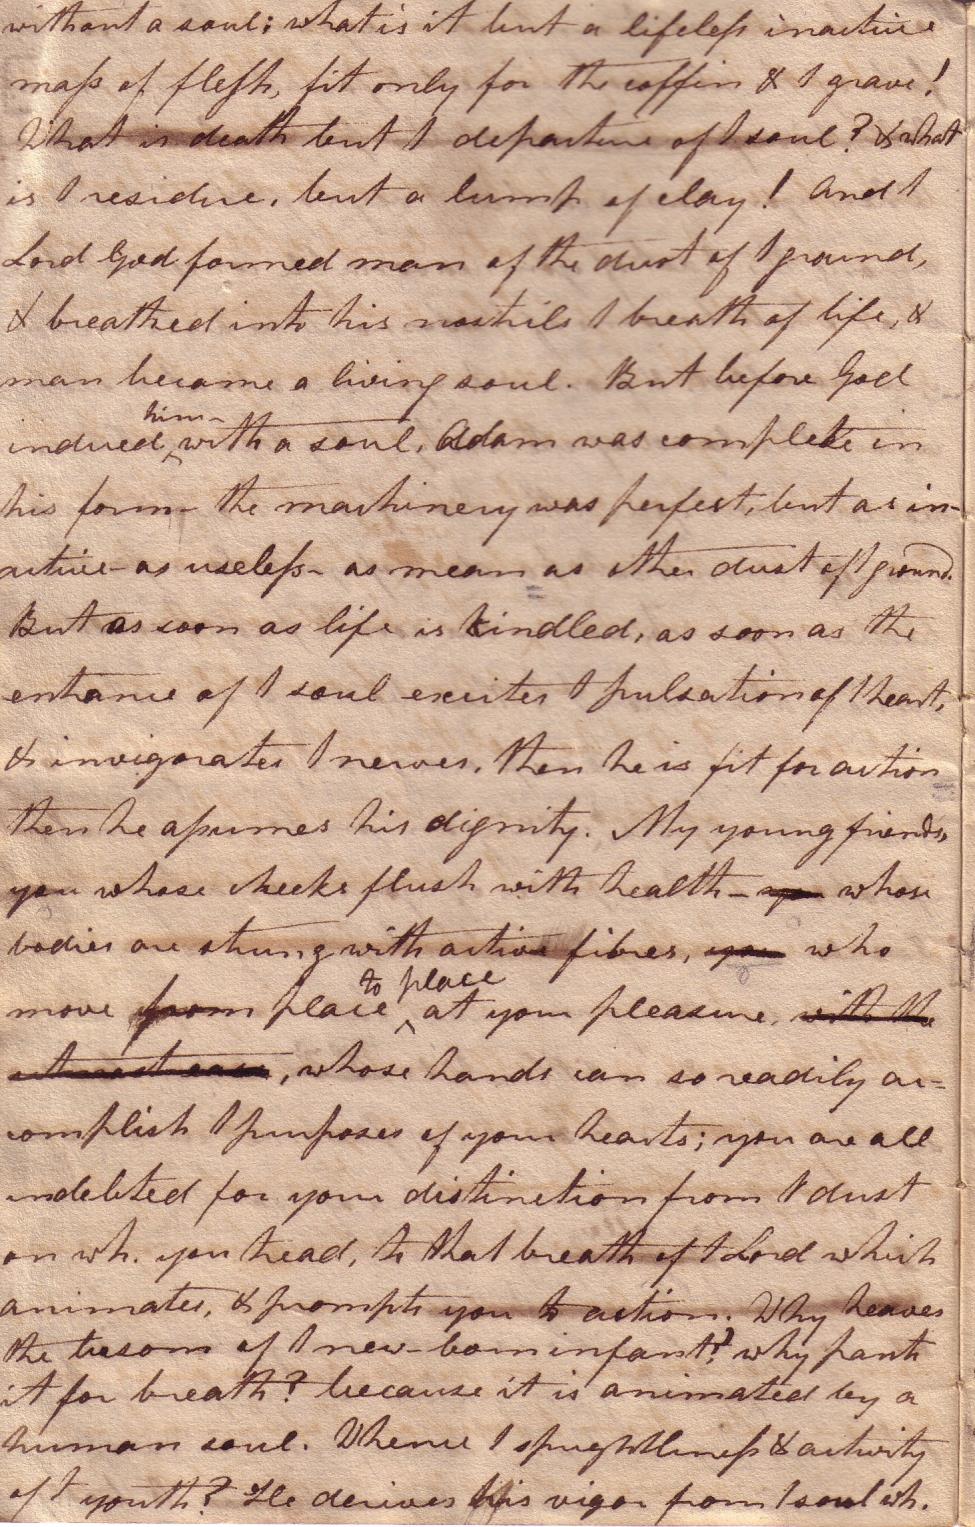 without a soul; what is it but a lifeless inactive
mass of flesh, fit only for the coffin & I grave!
What is death but I departure of I soul? & what
is I residue, but a lump of clay! And I
Lord God formed man of the dust of I ground,
& breathed into his nostrils I breath of life, &
man became a living soul. But before God
indued him with a soul, Adam was complete in
his form - the machinery was perfect, but as in-
active - as useless - as mean as other dust of I ground.
But as soon as life is kindled, as soon as the
entrance of I soul excites I pulsation of I heart,
& invigorates I nerves, then he is fit for action
then he assumes his dignity. My young friends,
you whose cheeks flush with health - you whose
bodies are strung with active fibres, you who
move from place to place at your pleasure, with the
utmost ease, whose hands can so readily ac=
complish I purposes of your hearts; you are all
indebted for your distinction from I dust
on wh. you tread, to that breath of I Lord which
animates, & prompts you to action. Why heaves
the bosom of I new-born infant? why pants
it for breath? because it is animated by a
human soul. Whence I sprightliness & activity
of I youth? He derives his vigor from I soul wh.